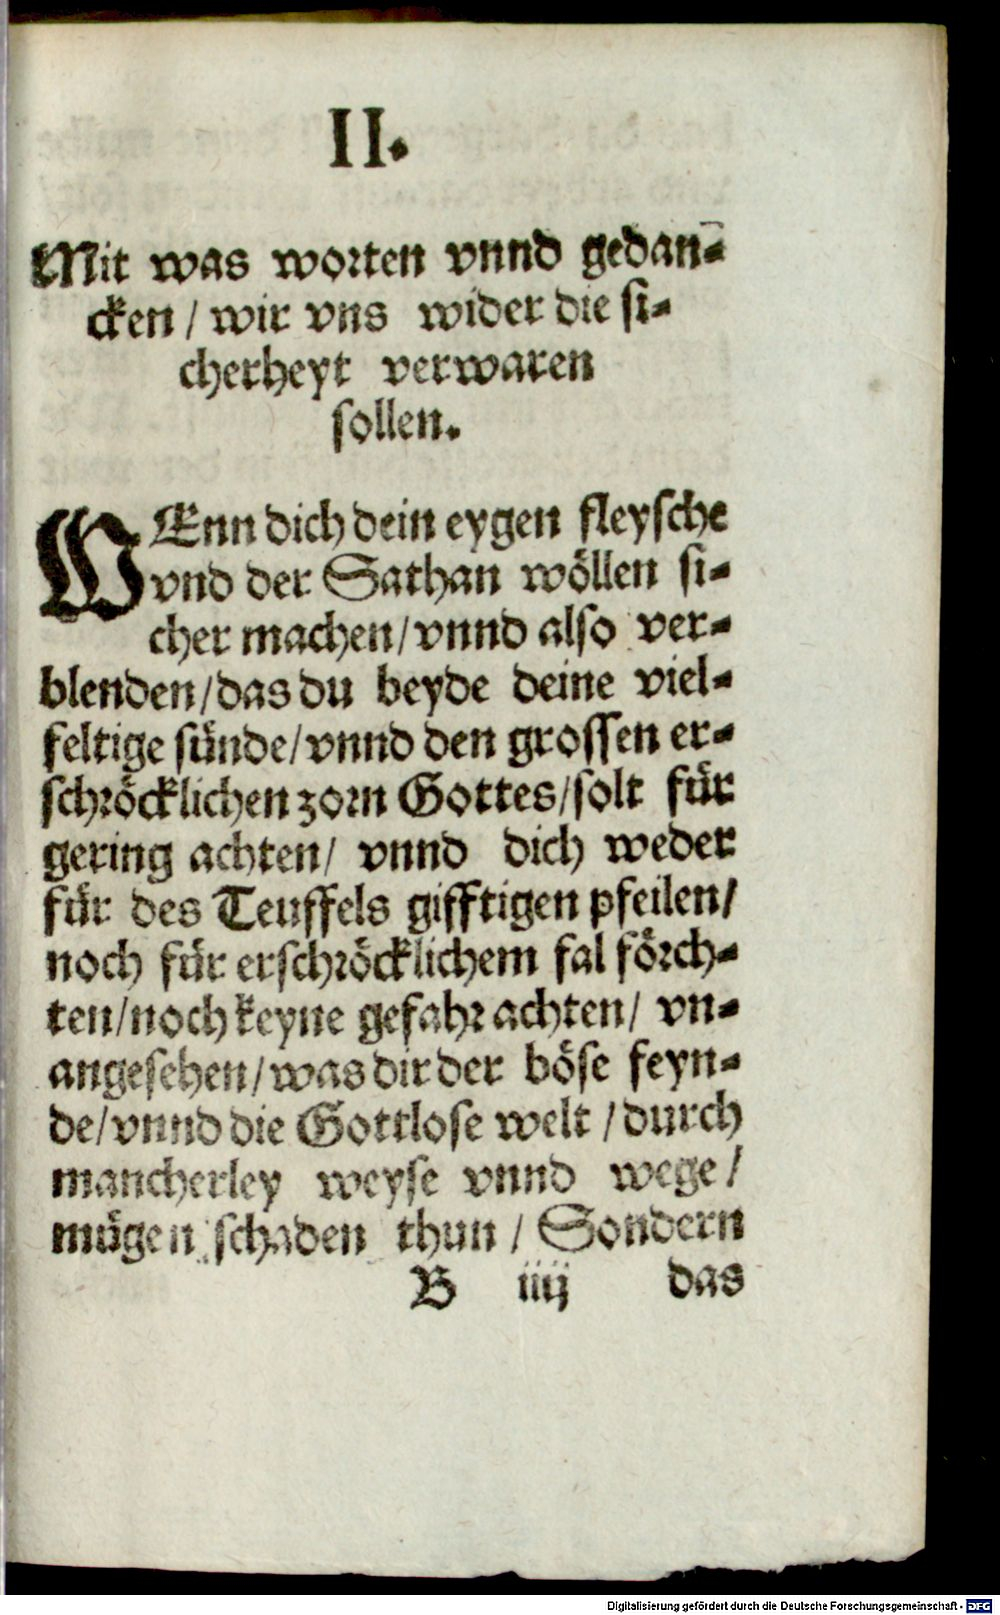 II.
Mit was worten vnnd gedan-
cken / wir vns wider die si-
cherheyt verwaren
sollen.
WEnn dich dein eygen fleysche
vnd der Sathan wöllen si-
cher machen / vnnd also ver-
blenden / das du beyde deine viel-
feltige sünde / vnnd den grossen er-
schröcklichen zorn Gottes / solt für
gering achten / vnnd dich weder
für des Teuffels gifftigen pfeilen /
noch für erschröcklichem fal förch-
ten / noch keyne gefahr achten / vn-
angesehen / was dir der böse feyn-
de / vnnd die Gottlose welt / durch
mancherley weyse vnnd wege /
mügen schaden thun / Sondern
B iiij das
Digitalisierung gefördert durch die Deutsche Forschungsgemeinschaft - DFG